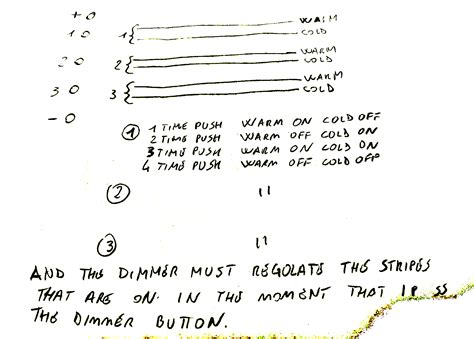 + O
1 O 1{ WARM
COLD
2 O 2{ WARM
COLD
3 O 3{ WARM
COLD
- O
① 1 TIME PUSH WARM ON COLD OFF
2 TIME PUSH WARM OFF COLD ON
3 TIME PUSH WARM ON COLD ON
4 TIME PUSH WARM OFF COLD OFF
② "
③ "
AND THE DIMMER MUST REGOLATE THE STRIPES
THAT ARE ON IN THE MOMENT THAT I P SS
THE DIMMER BUTTON.